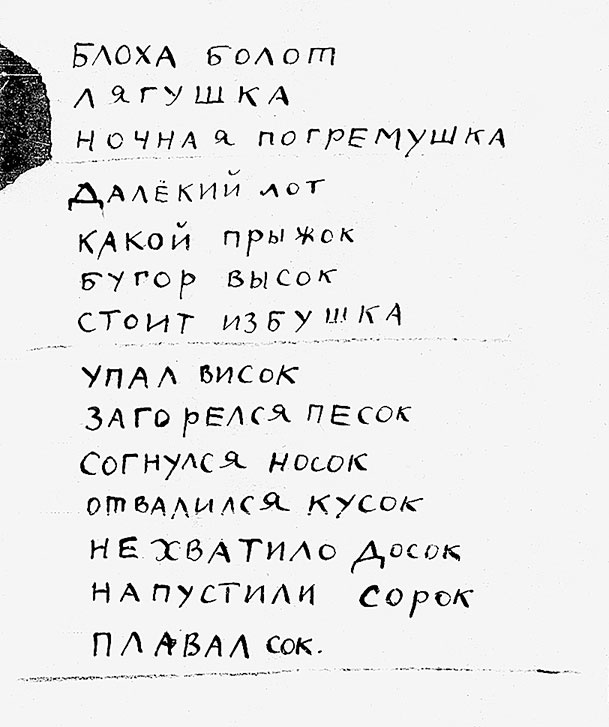 БЛОХА БОЛОТ
ЛЯГУШКА
НОЧНАЯ ПОГРЕМУШКА
ДАЛЁКИЙ ЛОТ
КАКОЙ ПРЫЖОК
БУГОР ВЫСОК
СТОИТ ИЗБУШКА
УПАЛ ВИСОК
ЗАГОРЕЛСЯ ПЕСОК
СОГНУЛСЯ НОСОК
ОТВАЛИЛСЯ КУСОК
НЕ ХВАТИЛО ДОСОК
НАПУСТИЛИ СОРОК
ПЛАВАЛ СОК.